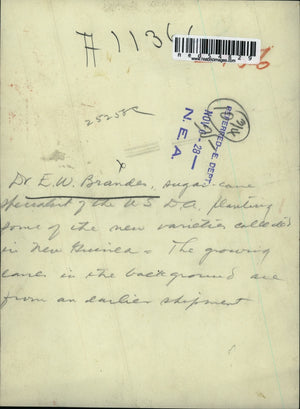 #1134
www.historicimages.com
25258C
REFERRED E. DEPT.
NOV 28
N. E. A.
Dr E. W. Brandes, sugar cane
specialist of the U S D. A. planting
some of the new varieties collected
in New Guinea. The growing
canes in the background are
from an earlier shipment